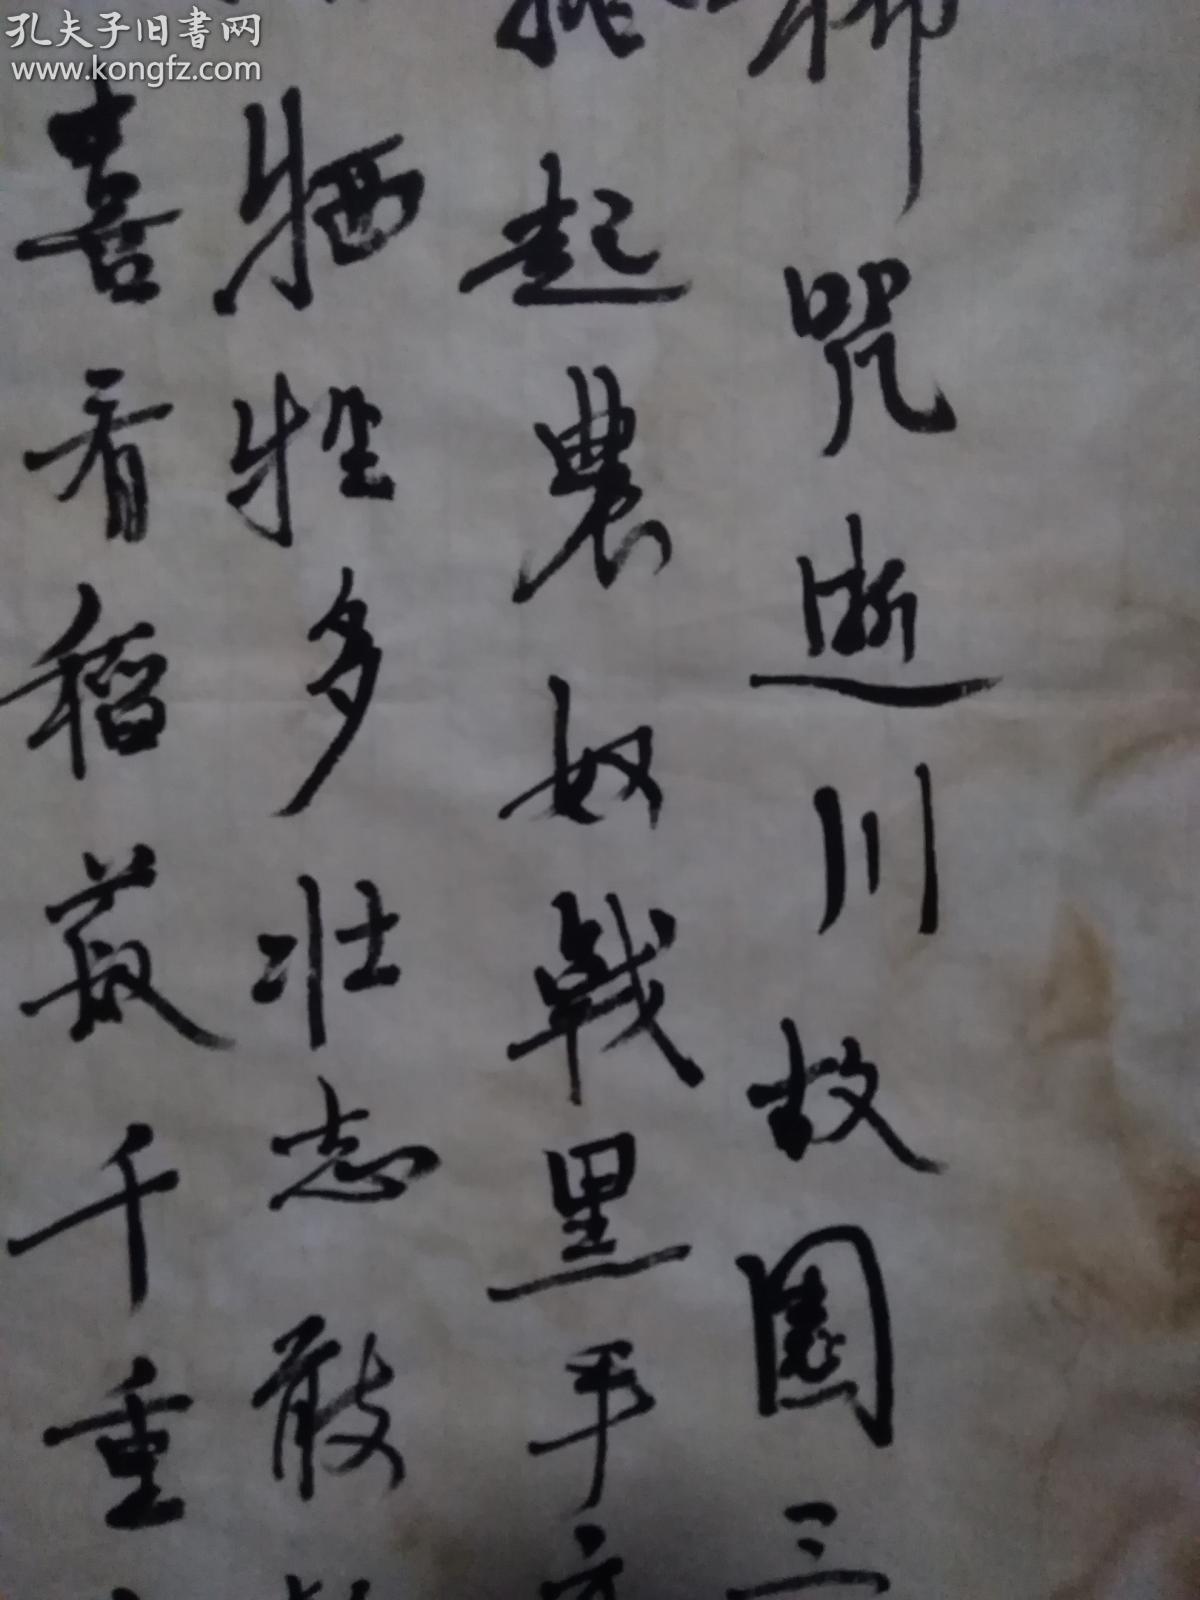 孔夫子旧書网
www.kongfz.com
咒逝川故園三
起農奴戟黑手
牺牲多壮志敢
喜看稻菽千重